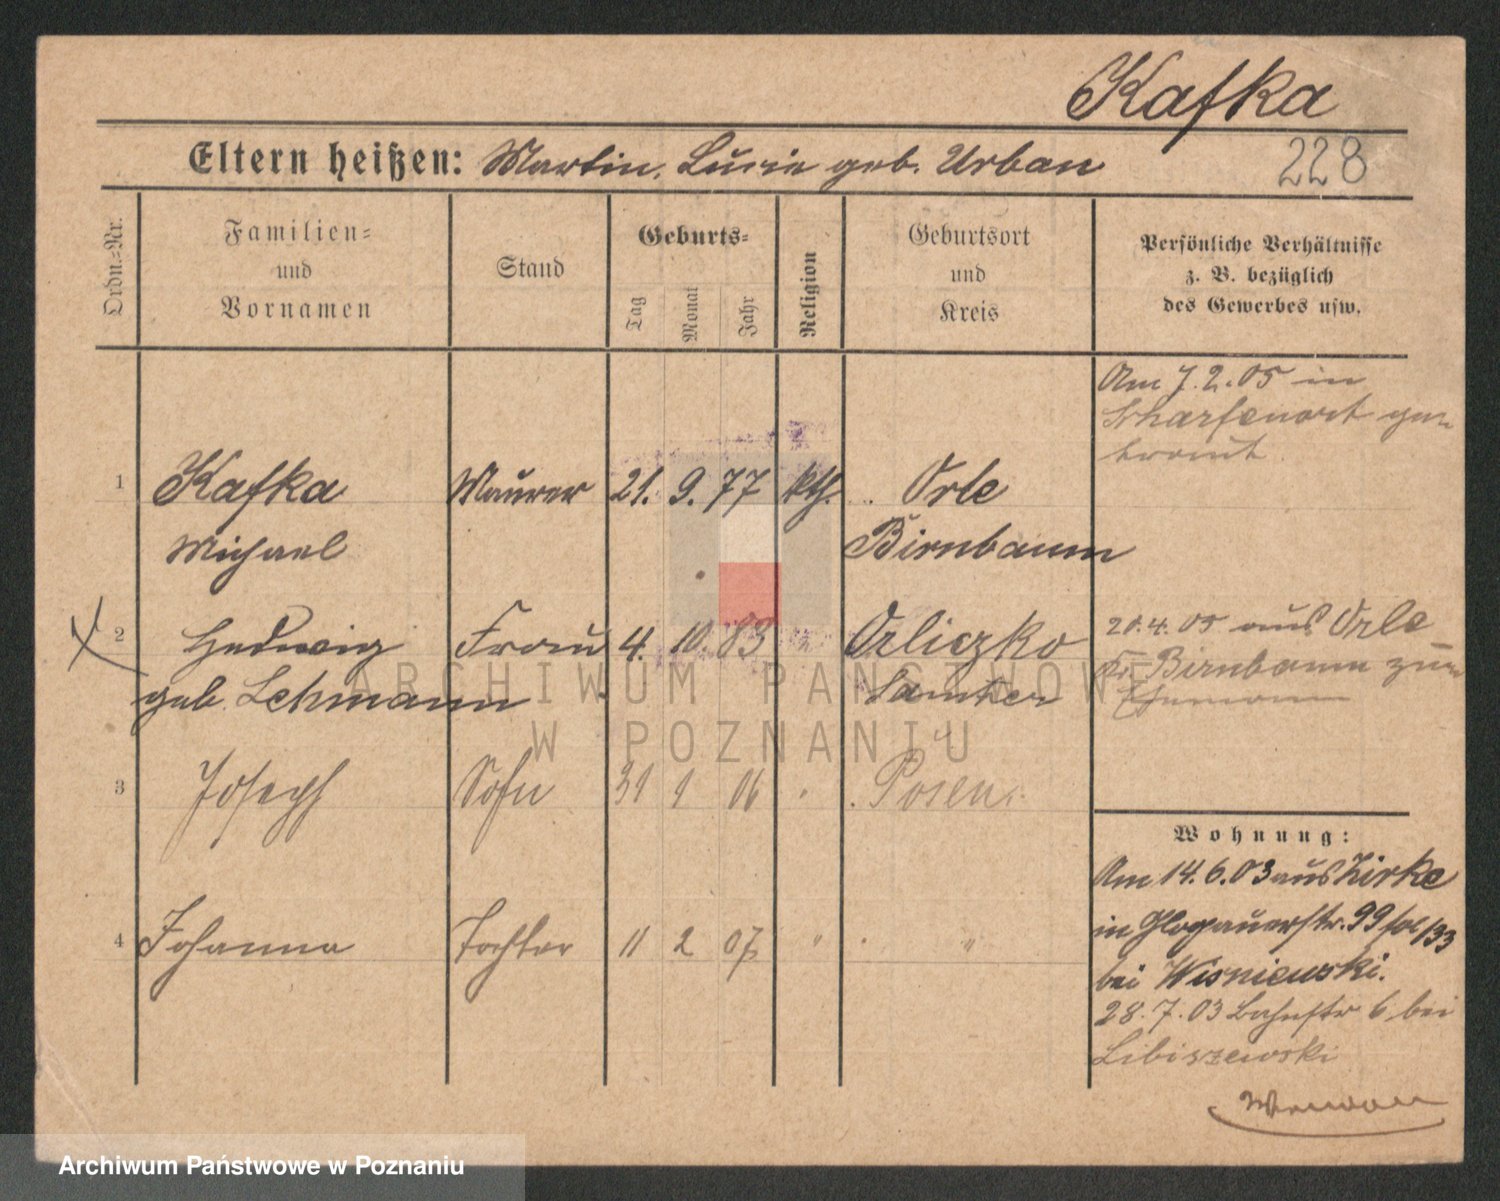 Kafka
228
Eltern heißen: Martin, Lucie geb. Urban
Ordn.-Nr.
Familien-
und
Vornamen
Stand
Geburts-
Tag
Monat
Jahr
Religion
Geburtsort
und
Kreis
Persönliche Verhältnisse
z. B. bezüglich
des Gewerbes usw.
Am 7.2.05 in
Scharfenort ge-
traut
1 Kafka Maurer 21. 9. 77 kth. Orle
Michael Birnbaum
2 Hedwig Frau 4. 10. 83 Orliczko
geb. Lehmann Samter
20.4.05 aus Orle
Kr. Birnbaum zum
Ehemann
3 Joseph Sohn 31 1 06 Posen
4 Johanna Tochter 11 2 07 " "
Wohnung:
Am 14.6.03 aus Zirke
in Glogauerstr. 99
bei Wisniewski.
28.7.03 Bahnstr 6 bei
Libiszewski
ARCHIWUM PAŃSTWOWE
W POZNANIU
Archiwum Państwowe w Poznaniu